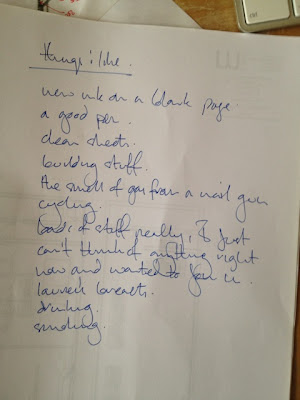 things i like.
new ink on a blank page.
a good pen.
clean sheets.
building stuff.
the smell of gas from a nail gun
cycling.
loads of stuff really, I just
can't think of anything right
now and wanted to join in.
laurell
drinking.
smoking.